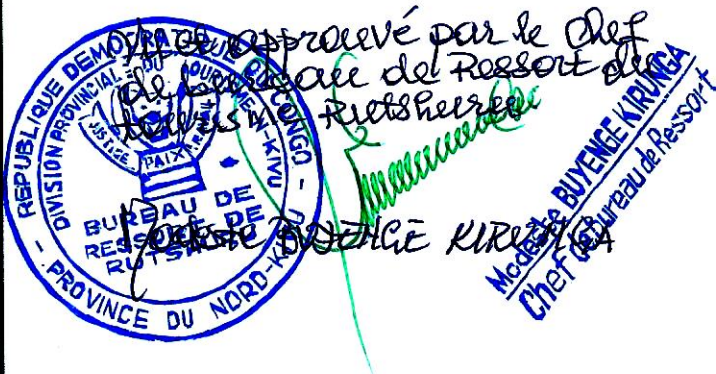 Vu et approuvé par le Chef
de bureau de Ressort du
tourisme Rutshuru
Modeste BUYENGE KIRUNGA
REPUBLIQUE DEMOCRATIQUE DU CONGO
DIVISION PROVINCIAL DU TOURISME N-KIVU
JUSTICE PAIX
BUREAU DE
RESSORT DE
RUTSHURU
- PROVINCE DU NORD-KIVU -
Modeste BUYENGE KIRUNGA
Chef de Bureau de Ressort